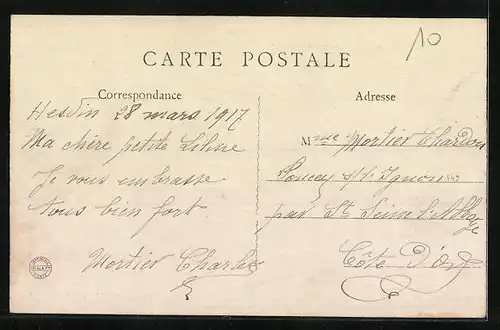 10
CARTE POSTALE
Correspondance
Hesdin 28 mars 1917
Ma chère petite
Je vous embrasse
tous bien fort
Mortier Charles
Adresse
Mme Mortier
s/s Ignon
par St Seine l'Abbaye
Côte D'Or